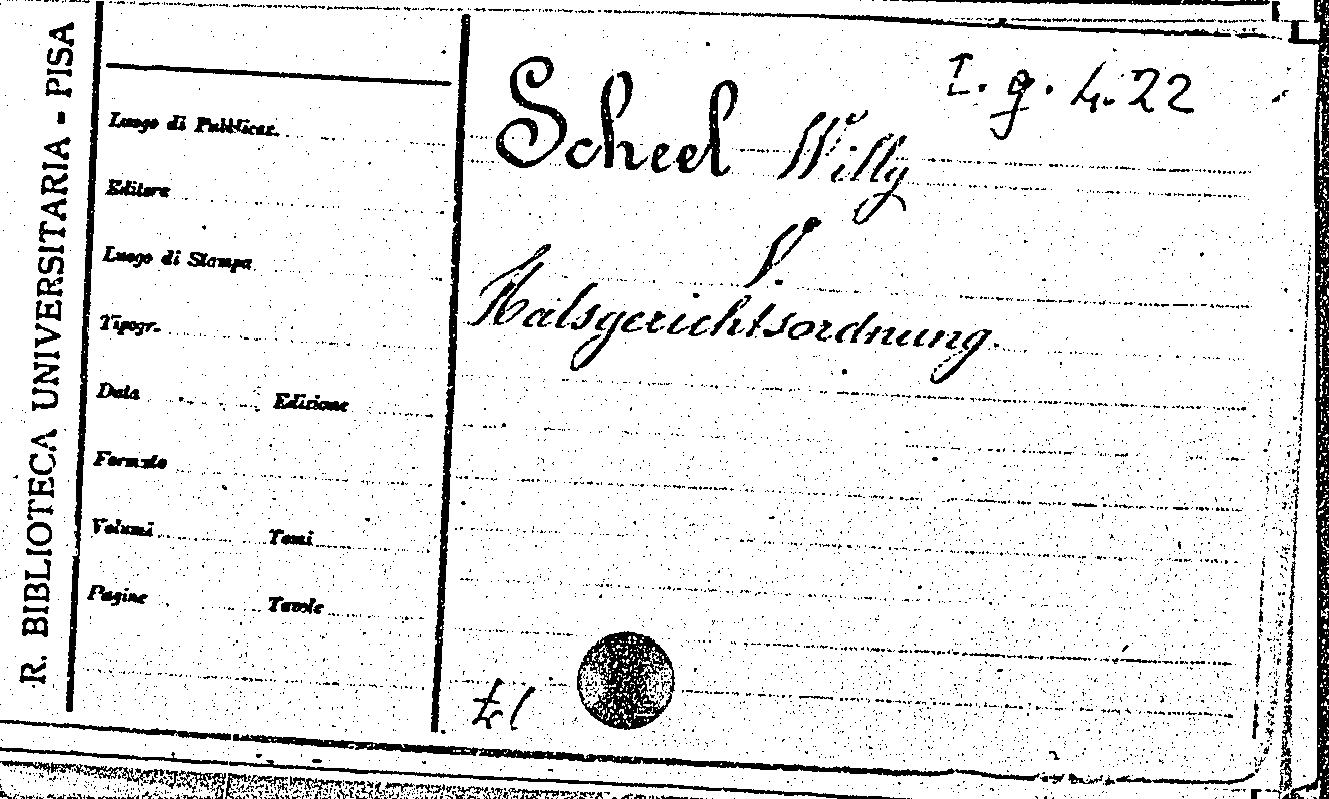 R. BIBLIOTECA UNIVERSITARIA - PISA
Luogo di Pubblicaz.
Editore
Luogo di Stampa
Tipogr.
Data Edizione
Formato
Volumi Tomi
Pagine Tavole
I. g. 4.22
Scheel Willy
V.
Halsgerichtsordnung.